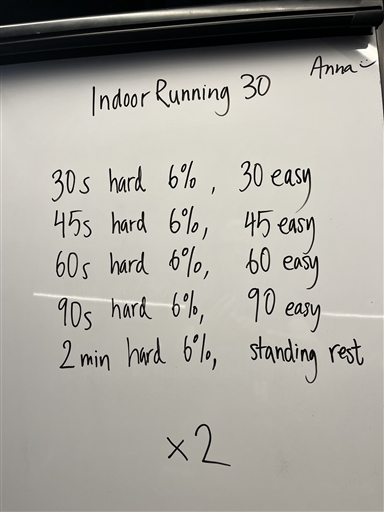 Anna
Indoor Running 30
30s hard 6%, 30 easy
45s hard 6%, 45 easy
60s hard 6%, 60 easy
90s hard 6%, 90 easy
2 min hard 6%, standing rest
x2